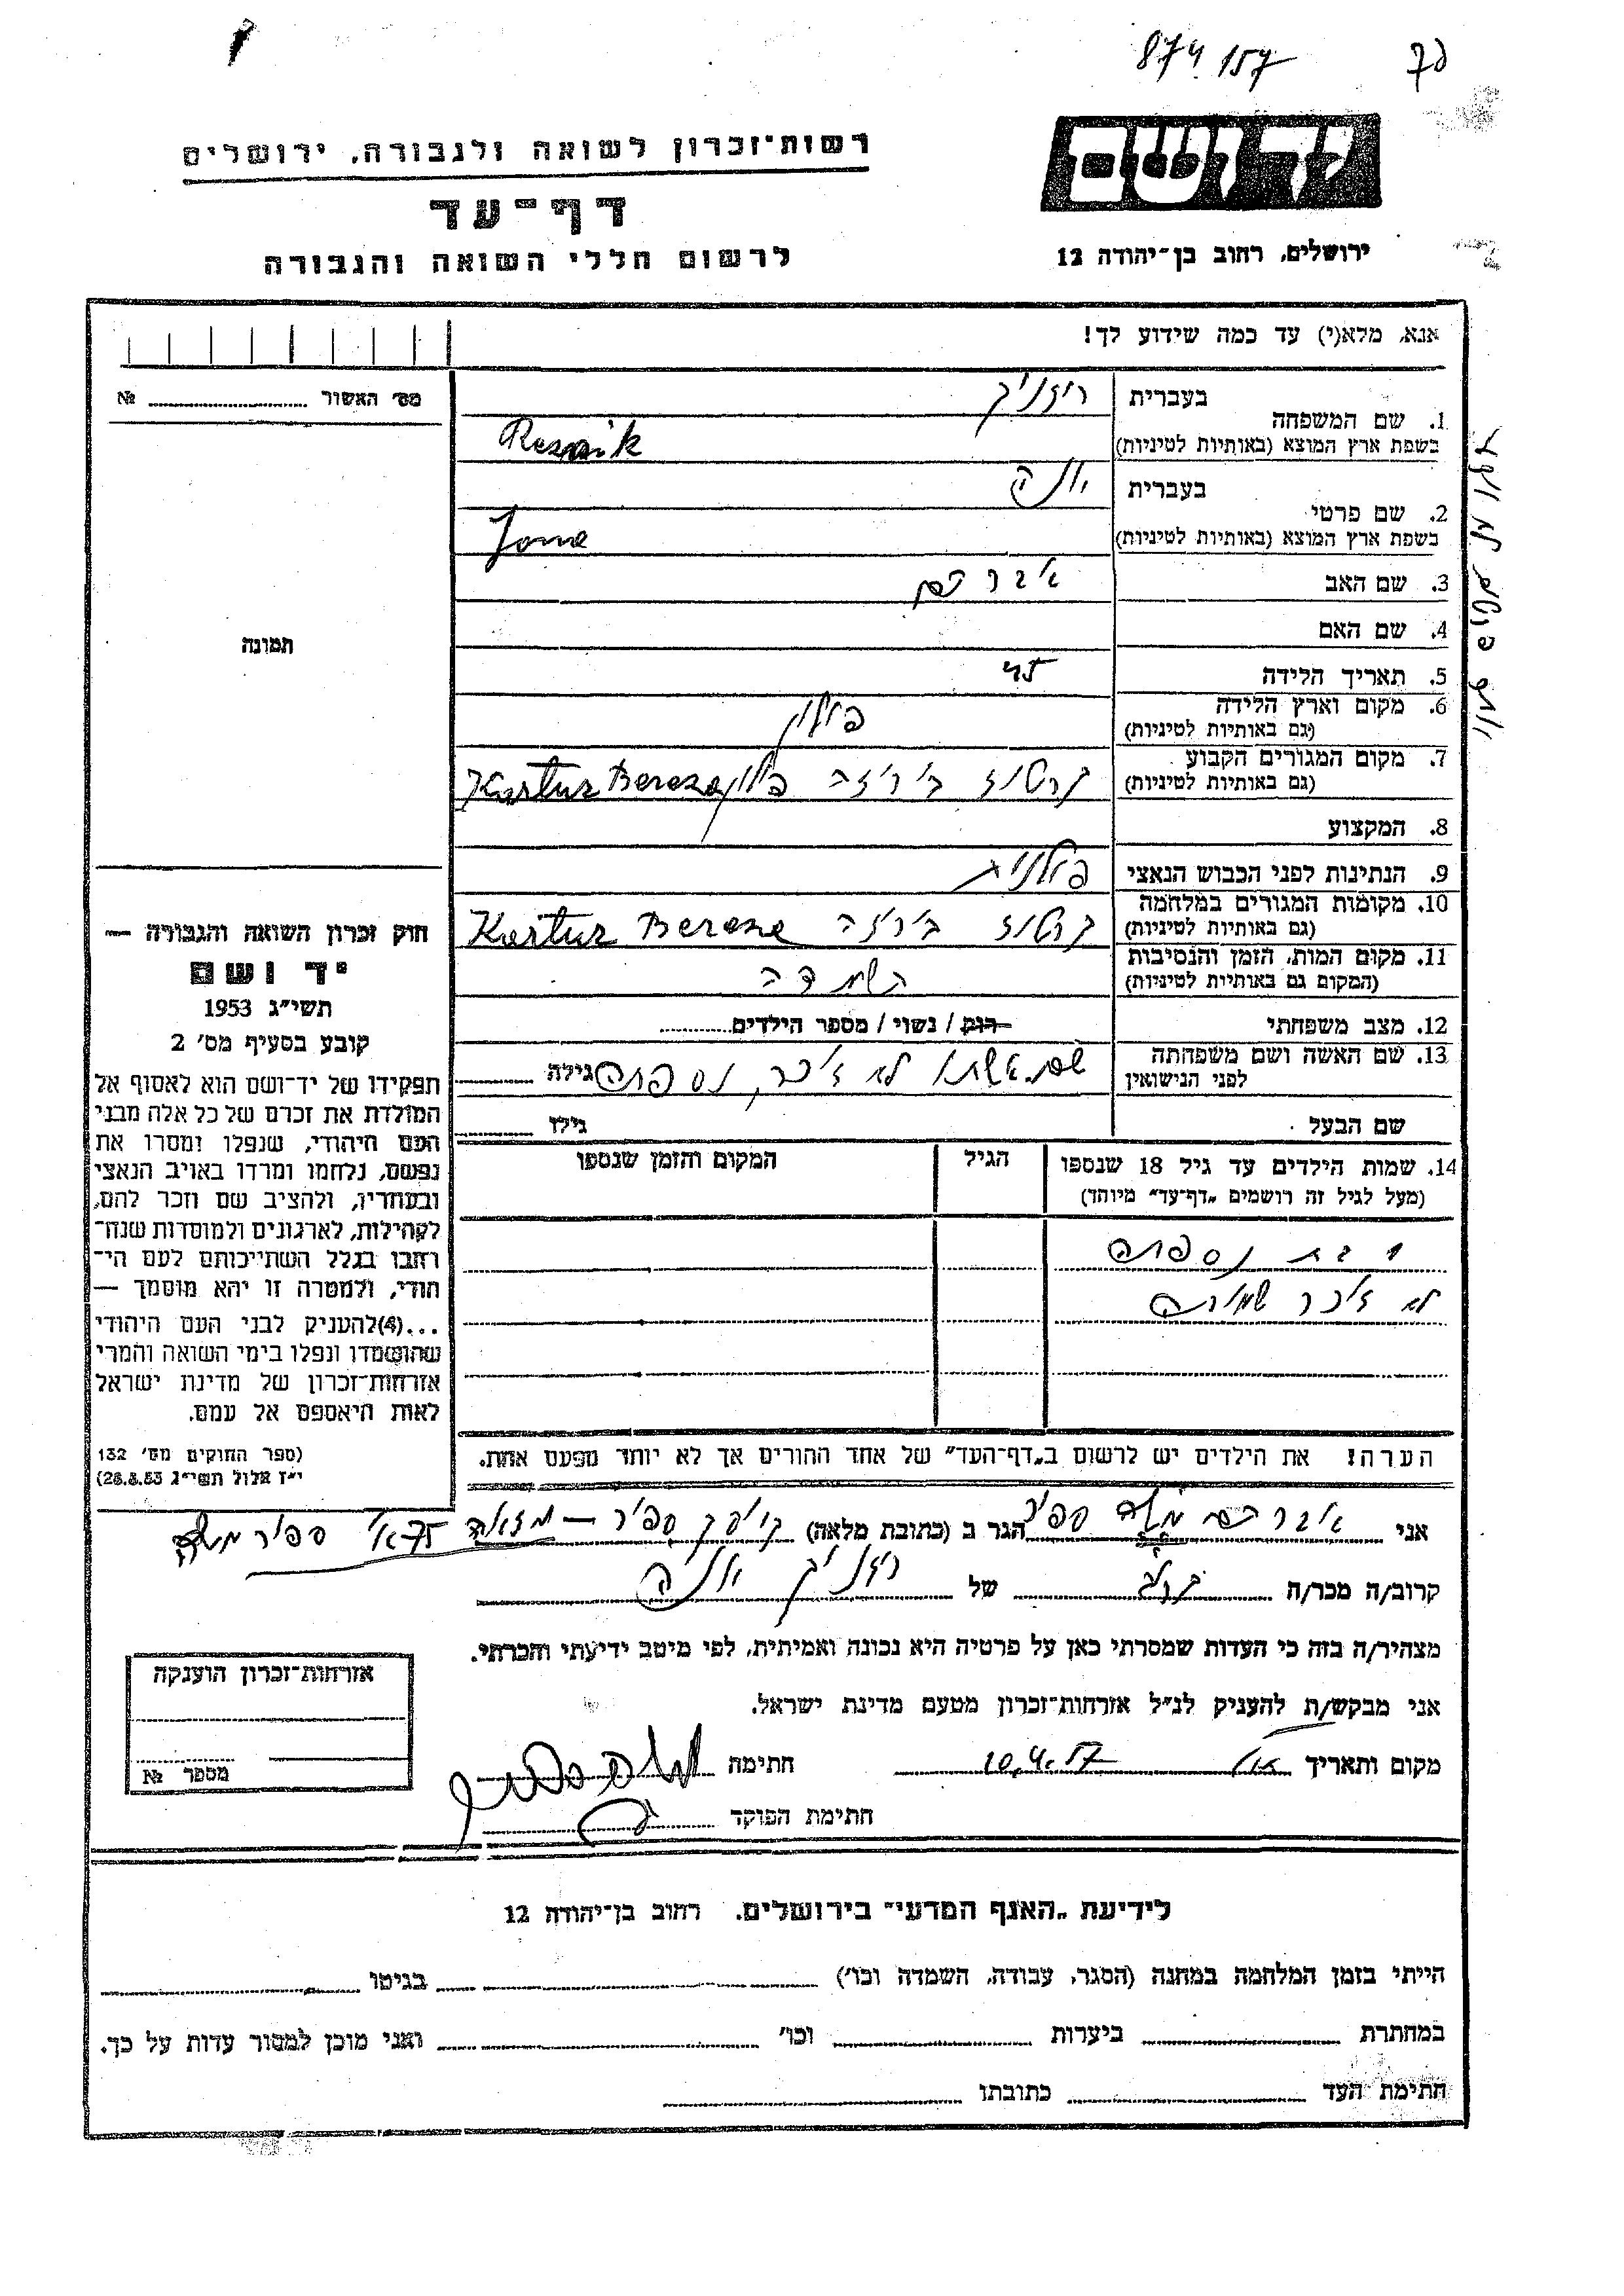 874 157
יד ושם
ירושלים, רחוב בן־יהודה 12
רשות־זכרון לשואה ולגבורה, ירושלים
דף־עד
לרשום חללי השואה והגבורה
אנא, מלא(י) עד כמה שידוע לך!
1. שם המשפחה
בעברית רזניק
בשפת ארץ המוצא (באותיות לטיניות) Resnik
2. שם פרטי
בעברית יונה
בשפת ארץ המוצא (באותיות לטיניות) Jone
3. שם האב אברהם
4. שם האם
5. תאריך הלידה 45
6. מקום וארץ הלידה פולין
(גם באותיות לטיניות)
7. מקום המגורים הקבוע
(גם באותיות לטיניות) קרטוז בירזה פולין Kartuz Bereza
8. המקצוע
9. הנתינות לפני הכבוש הנאצי פולנית
10. מקומות המגורים במלחמה
(גם באותיות לטיניות) קרטוז בירזה Kartuz Bereze
11. מקום המות, הזמן והנסיבות
(המקום גם באותיות לטיניות) השמדה
12. מצב משפחתי רווק / נשוי / מספר הילדים
13. שם האשה ושם משפחתה
לפני הנישואין שם אשתו לא זוכר, נספתה גילה
שם הבעל גילו
14. שמות הילדים עד גיל 18 שנספו
(מעל לגיל זה רושמים „דף־עד" מיוחד)
הגיל
המקום והזמן שנספו
בת נספתה
לא זוכר שמות
הערה! את הילדים יש לרשום ב„דף־העד" של אחד ההורים אך לא יותר מפעם אחת.
מס׳ האשור №
תמונה
חוק זכרון השואה והגבורה —
יד ושם
תשי״ג 1953
קובע בסעיף מס׳ 2
תפקידו של יד־ושם הוא לאסוף אל
המולדת את זכרם של כל אלה מבני
העם היהודי, שנפלו ומסרו את
נפשם, נלחמו ומרדו באויב הנאצי
ובעוזריו, ולהציב שם וזכר להם,
לקהילות, לארגונים ולמוסדות שנח־
רחבו בגלל השתייכותם לעם הי־
הודי, ולמטרה זו יהא מוסמך —
...(4)להעניק לבני העם היהודי
שהושמדו ונפלו בימי השואה והמרי
אזרחות־זכרון של מדינת ישראל
לאות היאספם אל עמם.
(ספר החוקים מס׳ 132
י״ז אלול תשי״ג 28.8.53)
אני אברהם משה ספיר הגר ב (כתובת מלאה) קיוסק ספיר —
קרוב/ה מכר/ה של רזניק יונה
מצהיר/ה בזה כי העדות שמסרתי כאן על פרטיה היא נכונה ואמיתית, לפי מיטב ידיעתי והכרתי.
אני מבקש/ת להעניק לנ״ל אזרחות־זכרון מטעם מדינת ישראל.
מקום ותאריך 10.4.57 חתימה
חתימת הפוקד
אזרחות־זכרון הוענקה
מספר №
לידיעת „האגף המדעי" בירושלים, רחוב בן־יהודה 12
הייתי בזמן המלחמה במחנה (הסגר, עבודה, השמדה וכו׳) בגיטו
במחתרת ביערות וכו׳ ואני מוכן למסור עדות על כך.
חתימת העד כתובתו